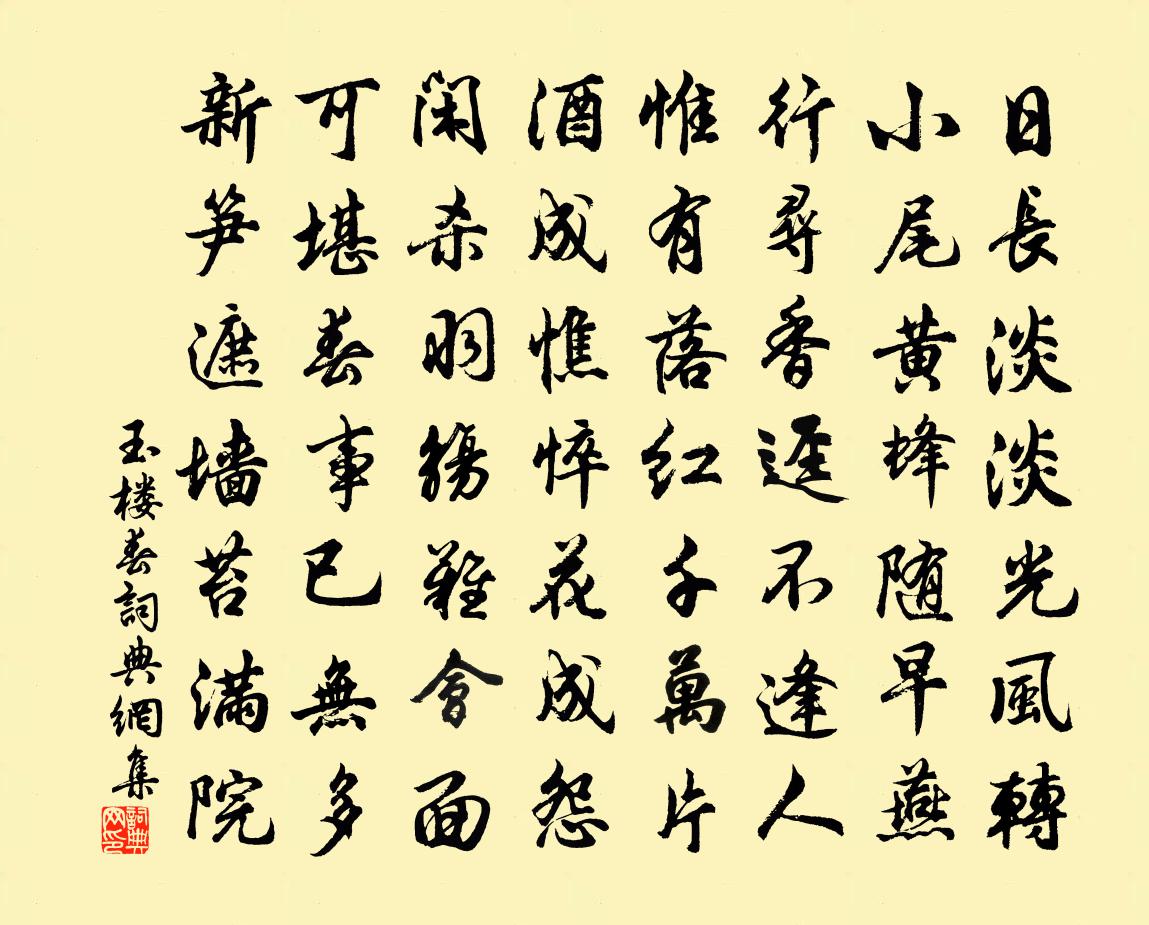 日長淡淡光風轉
小尾黄蜂随早燕
行尋香逕不逢人
惟有落红千萬片
酒成憔悴花成怨
闲杀羽觞難會面
可堪春事已無多
新笋遮墙苔满院
玉楼春詞典網集
詞典